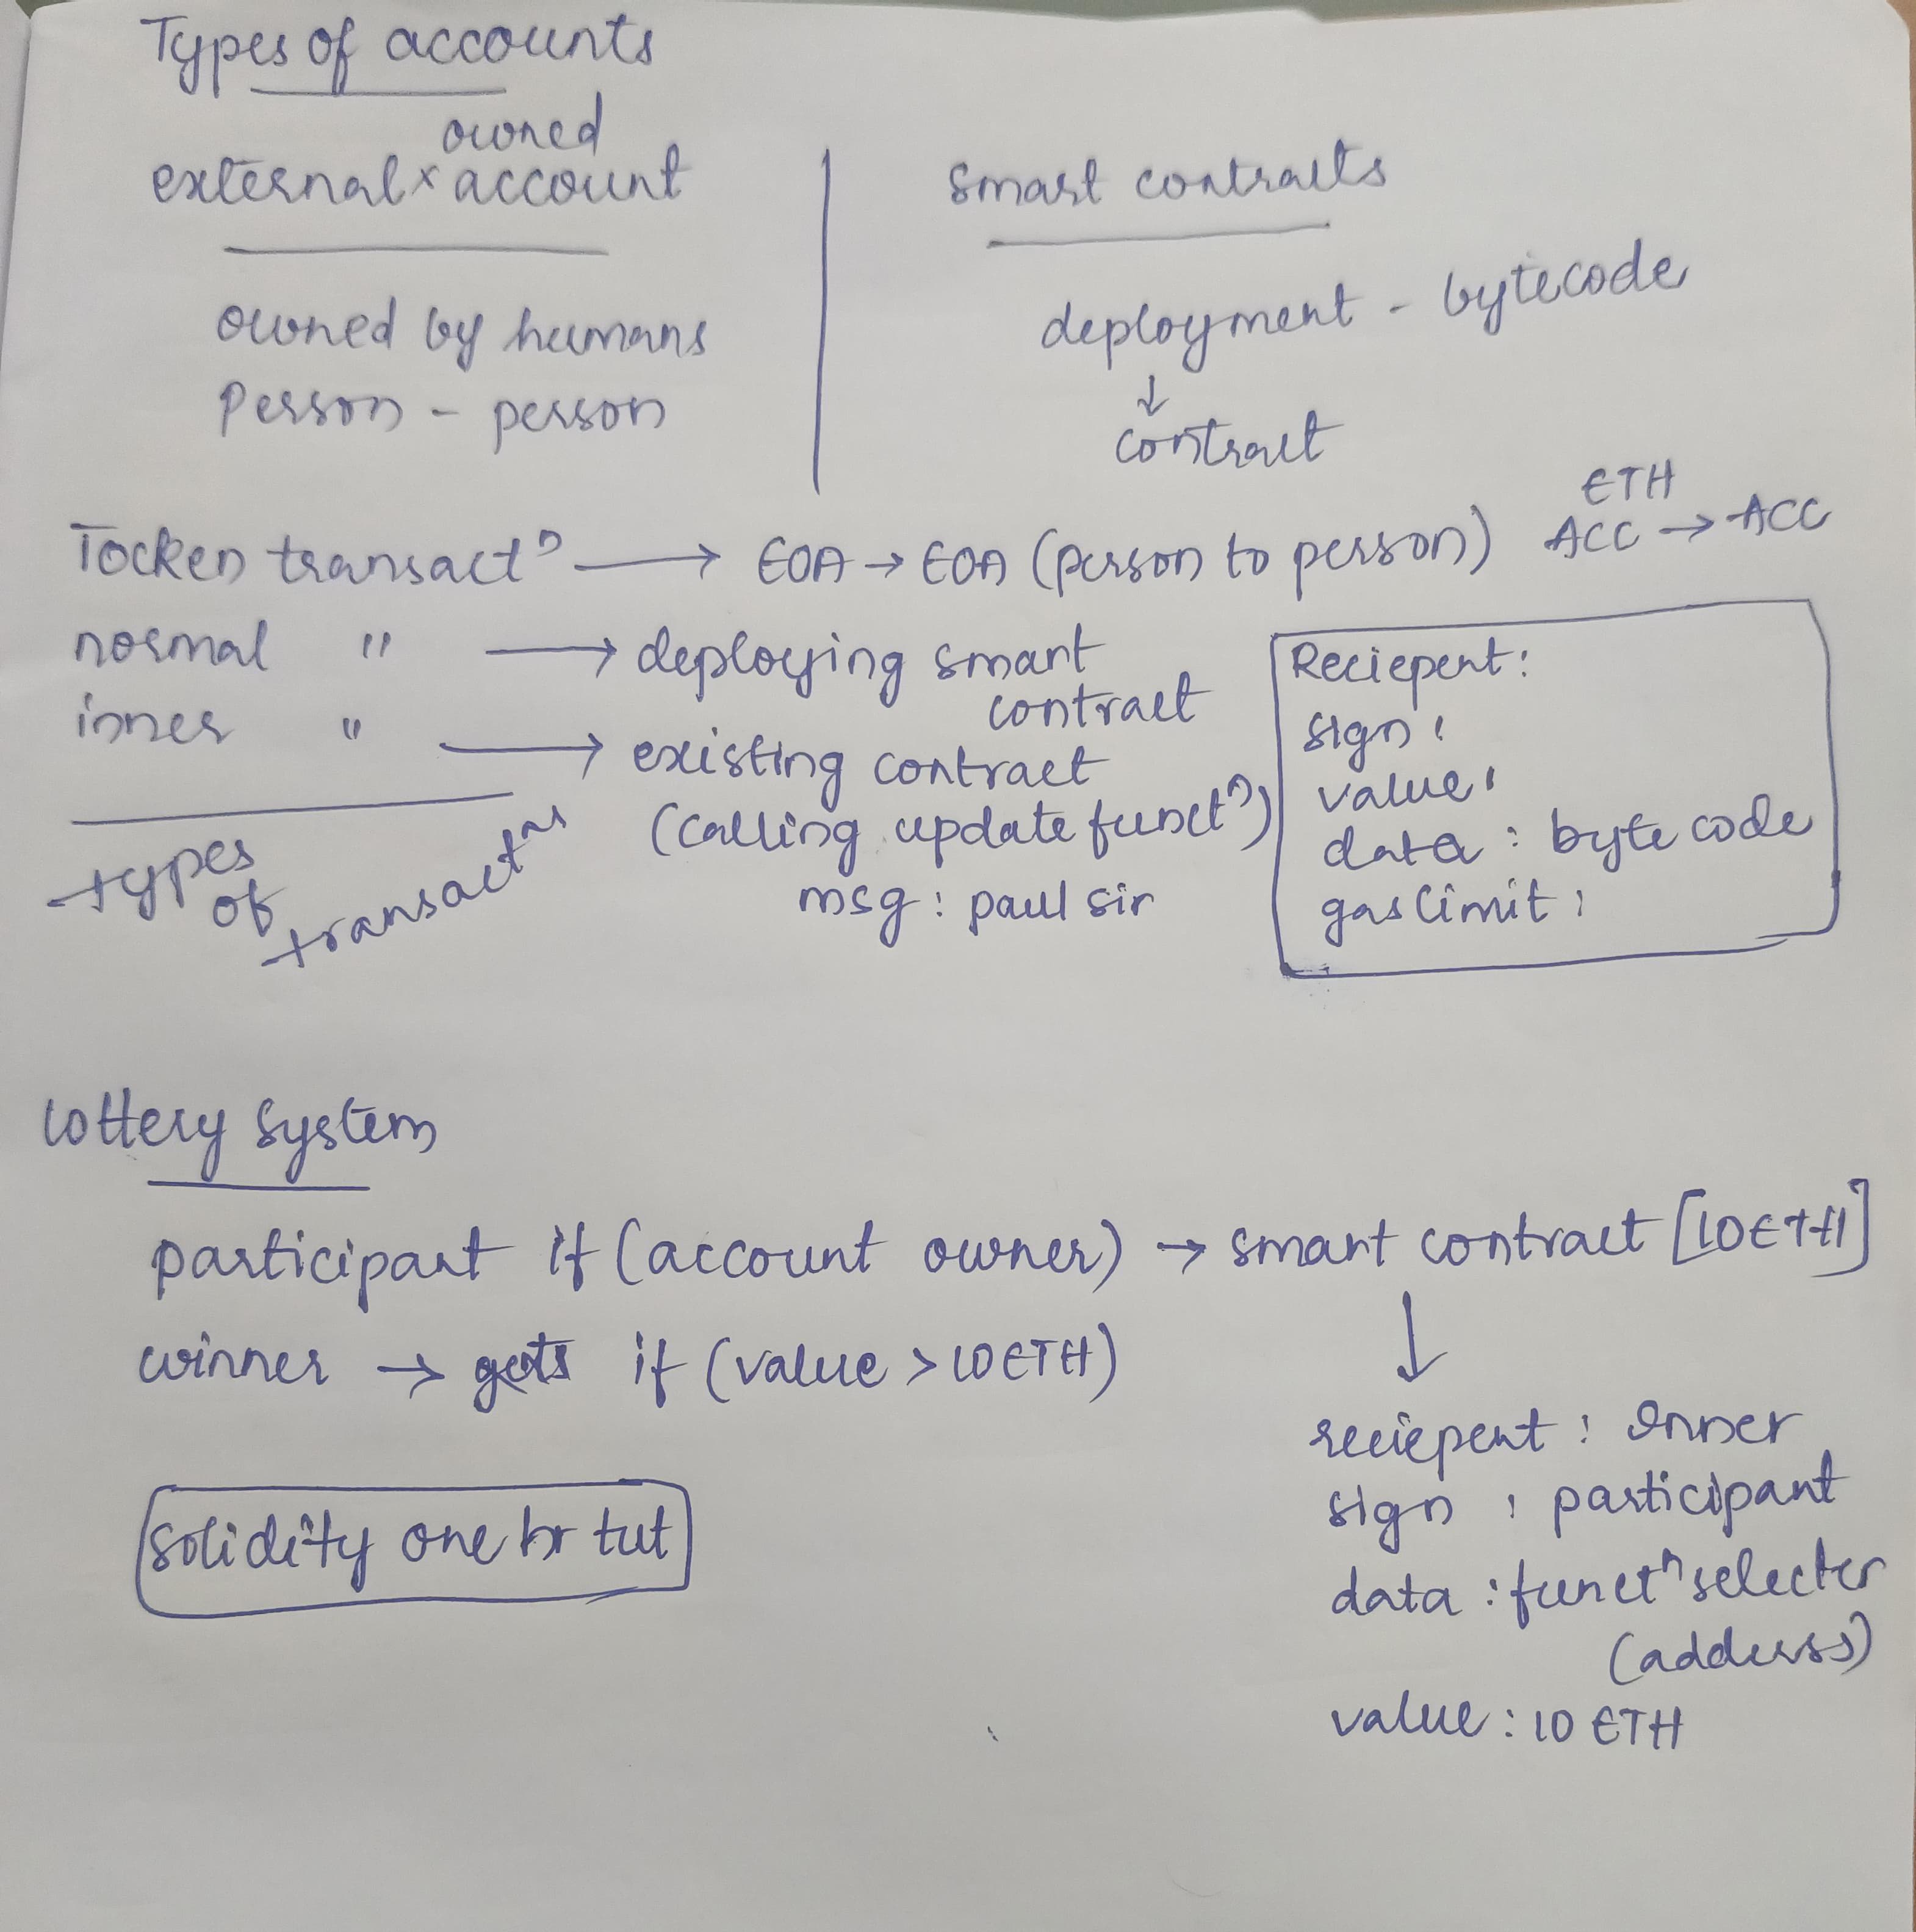 Types of accounts
owned
external x account
owned by humans
Person - person
smart contracts
deployment - bytecode
↓
contract
Tocken transactⁿ → EOA → EOA (person to person)
ETH
ACC → ACC
normal " → deploying smart
contract
inner " → existing contract
(calling update functⁿ)
msg : paul sir
types
of
transactⁿs
Reciepent:
sign :
value :
data : byte code
gas limit :
lottery system
participant if (account owner) → smart contract [10ETH]
winner → gets if (value > 10 ETH)
↓
reciepent : Inner
sign : participant
data : functⁿ selecter
(adderss)
value : 10 ETH
solidity one hr tut